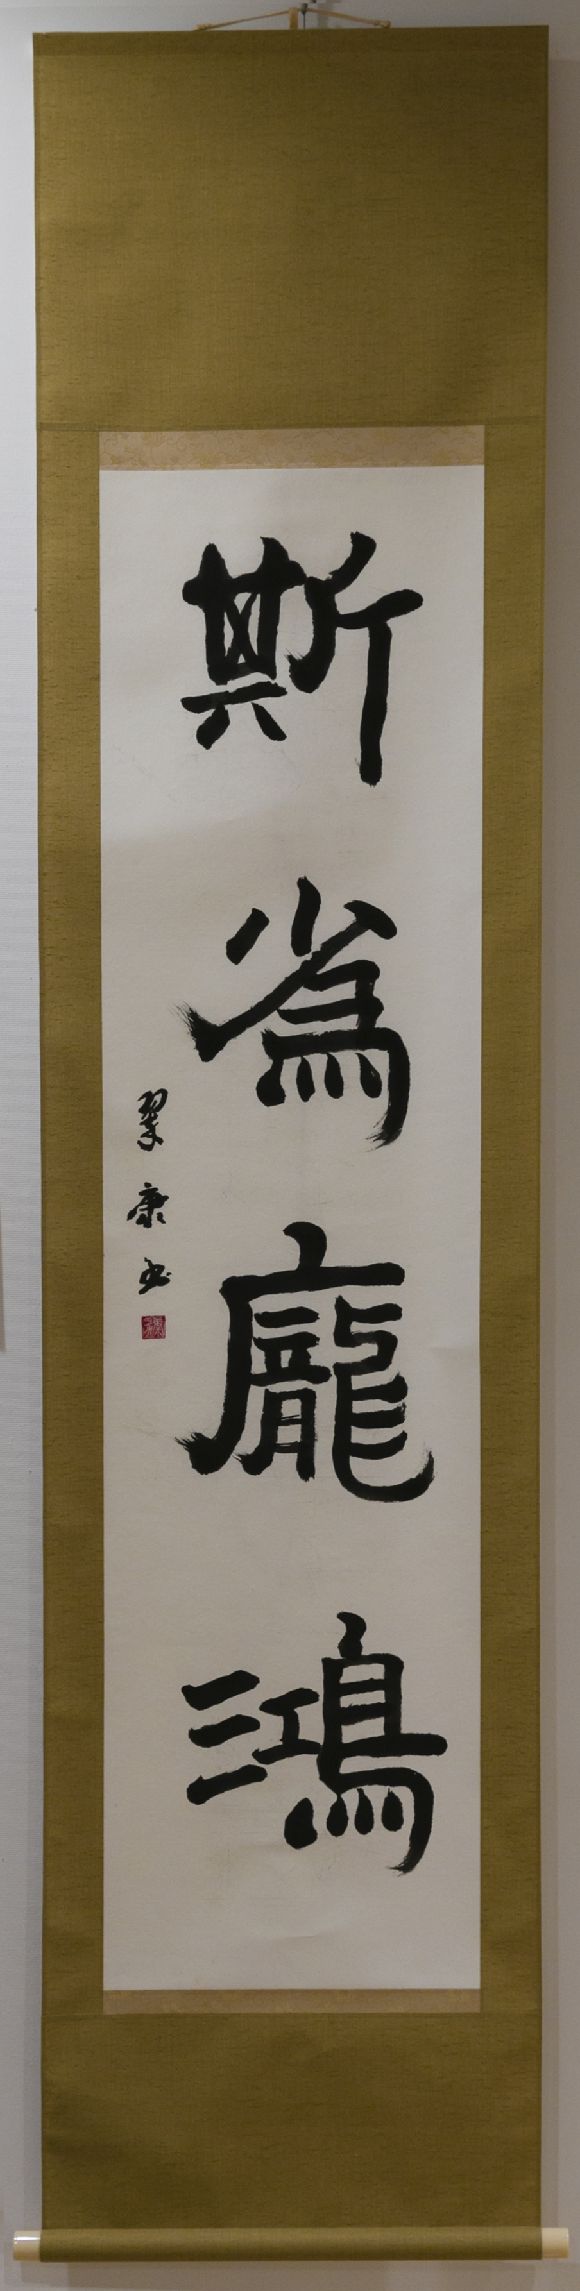 斯為龐鴻
翠康書